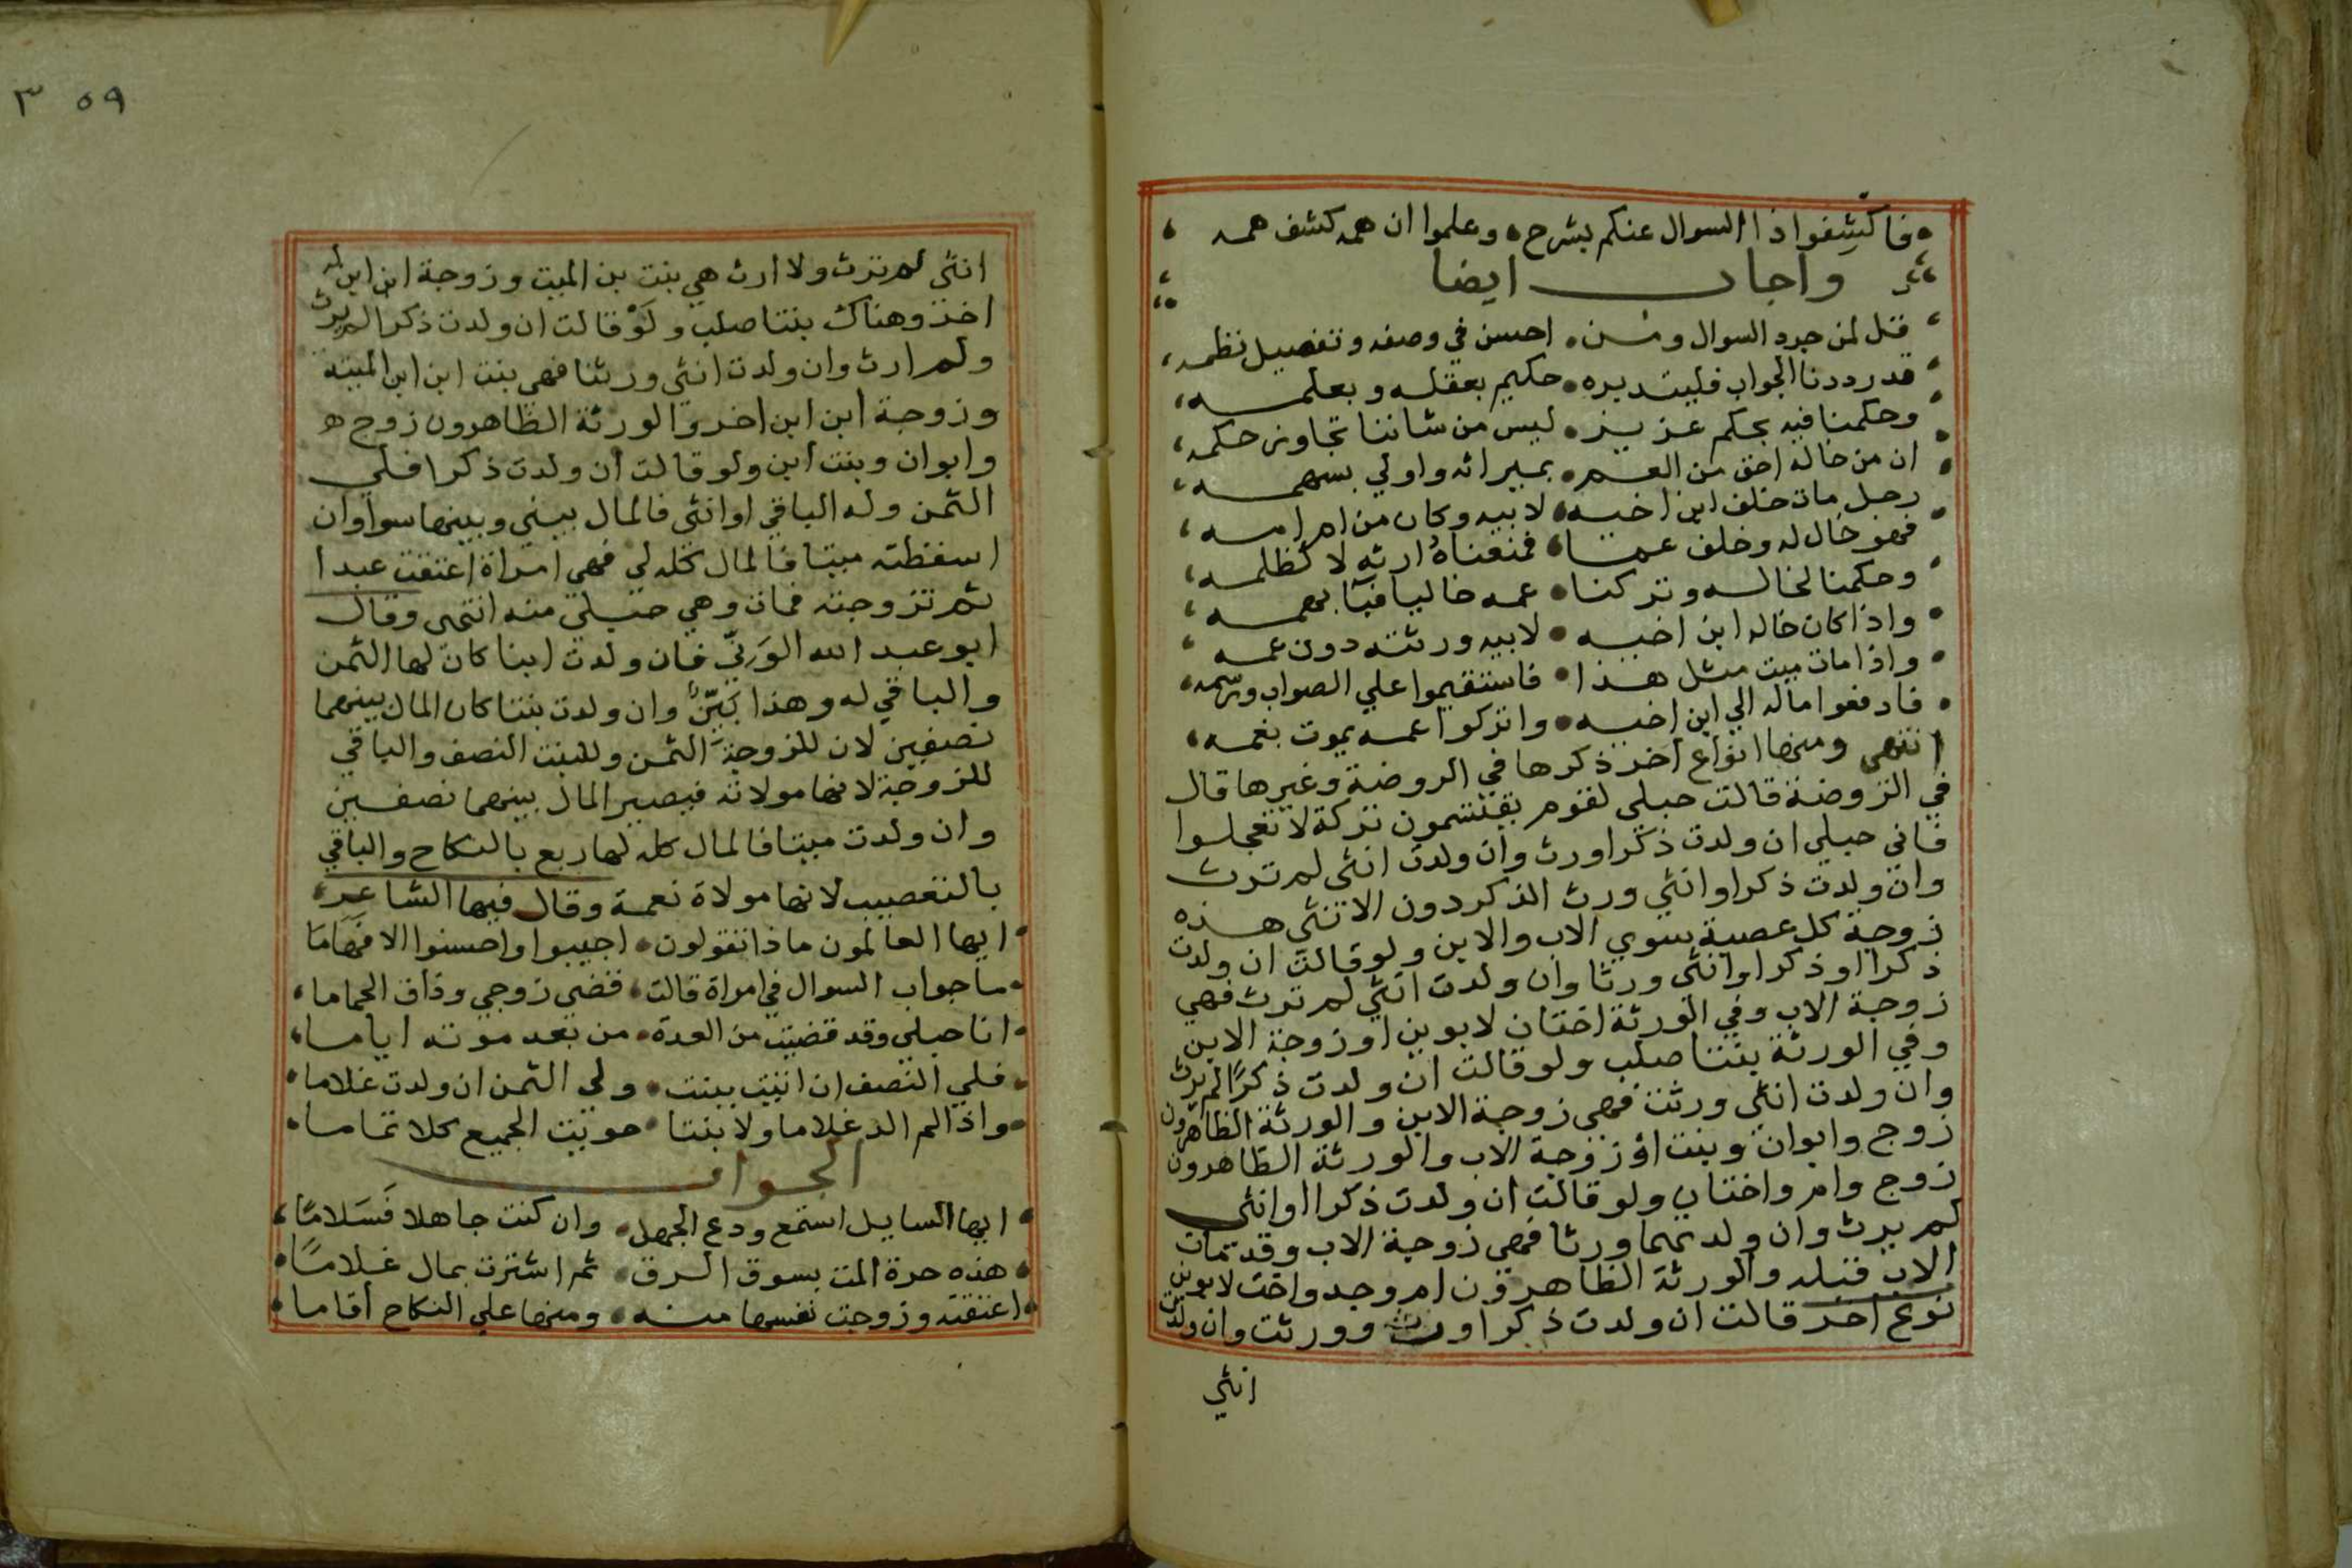 فاكشفوا ذا السوال عنكم بشرح وعلموا ان همه كشف همه
واجاب ايضا
قل لمن جرد السوال ومن احسن في وصفه وتفصيل نظمه
قد رددنا الجواب فليتدبره حكيم بعقله وبعلمه
وحكمنا فيه بحكم عزيز ليس من شاننا تجاوز حكمه
ان من خاله احق من العم بميراثه واولي بسهمه
رجل مات خلف ابن اخيه لابيه وكان من ام امه
فهو خال له وخلف عما فمنعناه ارثه لا كظلمه
وحكمنا لخاله وتركنا عمه خاليا بهمه
واذا كان خاله ابن اخيه لابيه ورثته دون عمه
واذا مات ميت مثل هذا فاستقيموا علي الصواب ورسمه
فادفعوا ماله الي ابن اخيه واتركوا عمه يموت بغمه
انتهى ومنها انواع اخر ذكرها في الروضة وغيرها قال
في الروضة قالت حبلى لقوم يقتسمون تركة لا تعجلوا
فاني حبلي ان ولدت ذكرا ورث وان ولدت انثى لم ترث
وان ولدت ذكرا وانثي ورث الذكر دون الانثي هذه
زوجة كل عصبة سوي الاب والابن ولو قالت ان ولدت
ذكرا او ذكرا وانثى ورثا وان ولدت انثي لم ترث فهي
زوجة الاب وفي الورثة اختان لابوين او زوجة الابن
وفي الورثة بنتا صلب ولو قالت ان ولدت ذكرا لم يرث
وان ولدت انثي ورثت فهي زوجة الابن والورثة الظاهرون
زوج وابوان وبنت او زوجة الاب والورثة الظاهرون
زوج وام واختان ولو قالت ان ولدت ذكرا او انثى
لم يرث وان ولدتهما ورثا فهي زوجة الاب وقد مات
الاب قبله والورثة الظاهرون ام وجد واخت لابوين
نوع اخر قالت ان ولدت ذكرا ورث وورثت وان ولدت
انثي
٥٩ ٣
انثى لم ترث ولا ارث هي بنت بن الميت وزوجة ابن ابن له
اخر وهناك بنتا صلب ولو قالت ان ولدت ذكرا لم يرث
ولم ارث وان ولدت انثي ورثنا فهي بنت ابن ابن الميتة
وزوجة ابن ابن اخر والورثة الظاهرون زوج
وابوان وبنت ابن ولو قالت ان ولدت ذكرا فلي
الثمن وله الباقي او انثى فالمال بيني وبينها سوا وان
اسقطته ميتا فالمال كله لي فهي امراة اعتقت عبدا
ثم تزوجته فمات وهي حبلى منه انتهى وقال
ابو عبد الله الوني فان ولدت ابنا كان لها الثمن
والباقي له وهذا بين وان ولدت بنتا كان المال بينهما
نصفين لان للزوجة الثمن وللبنت النصف والباقي
للزوجة لانها مولاته فيصير المال بينهما نصفين
وان ولدت ميتا فالمال كله لها ربع بالنكاح والباقي
بالتعصيب لانها مولاة نعمة وقال فيها الشاعر
ايها العالمون ماذا تقولون اجيبوا واحسنوا الافهاما
ما جواب السوال في امراة قالت قضى زوجي وذاق الحماما
انا حبلي وقد قضيت من العدة من بعد موته اياما
فلي النصف ان اتيت ببنت ولى الثمن ان ولدت غلاما
واذا لم الد غلاما ولا بنتا حويت الجميع كلا تماما
الجواب
ايها السايل استمع ودع الجهل وان كنت جاهلا فسلاما
هذه حرة المت بسوق الرق ثم اشترت بمال غلاما
اعتقته وزوجت نفسها منه ومنها علي النكاح اقاما